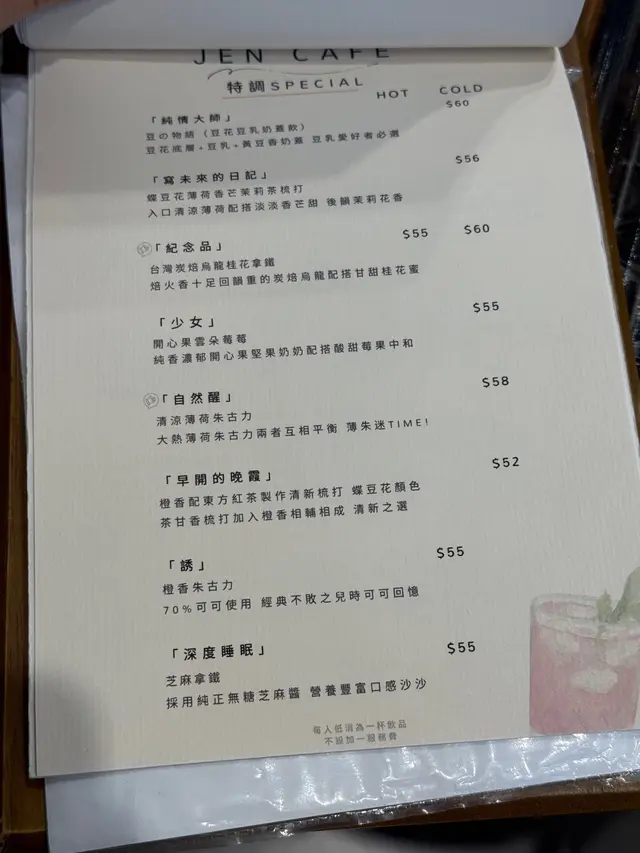 JEN CAFE
特調SPECIAL
HOT COLD
$60
「純情大師」
豆の物語（豆花豆乳奶蓋飲）
豆花底層+豆乳+黃豆香奶蓋 豆乳愛好者必選
$56
「寫未來的日記」
蝶豆花薄荷香芒茉莉茶梳打
入口清涼薄荷配搭淡淡香芒甜 後韻茉莉花香
「紀念品」 $55 $60
台灣炭焙烏龍桂花拿鐵
焙火香十足回韻重的炭焙烏龍配搭甘甜桂花蜜
$55
「少女」
開心果雲朵莓莓
純香濃郁開心果堅果奶奶配搭酸甜莓果中和
$58
「自然醒」
清涼薄荷朱古力
大熱薄荷朱古力兩者互相平衡 薄朱迷TIME!
$52
「早開的晚霞」
橙香配東方紅茶製作清新梳打 蝶豆花顏色
茶甘香梳打加入橙香相輔相成 清新之選
「誘」 $55
橙香朱古力
70%可可使用 經典不敗之兒時可可回憶
「深度睡眠」 $55
芝麻拿鐵
採用純正無糖芝麻醬 營養豐富口感沙沙
每人低消為一杯飲品
不設加一服務費